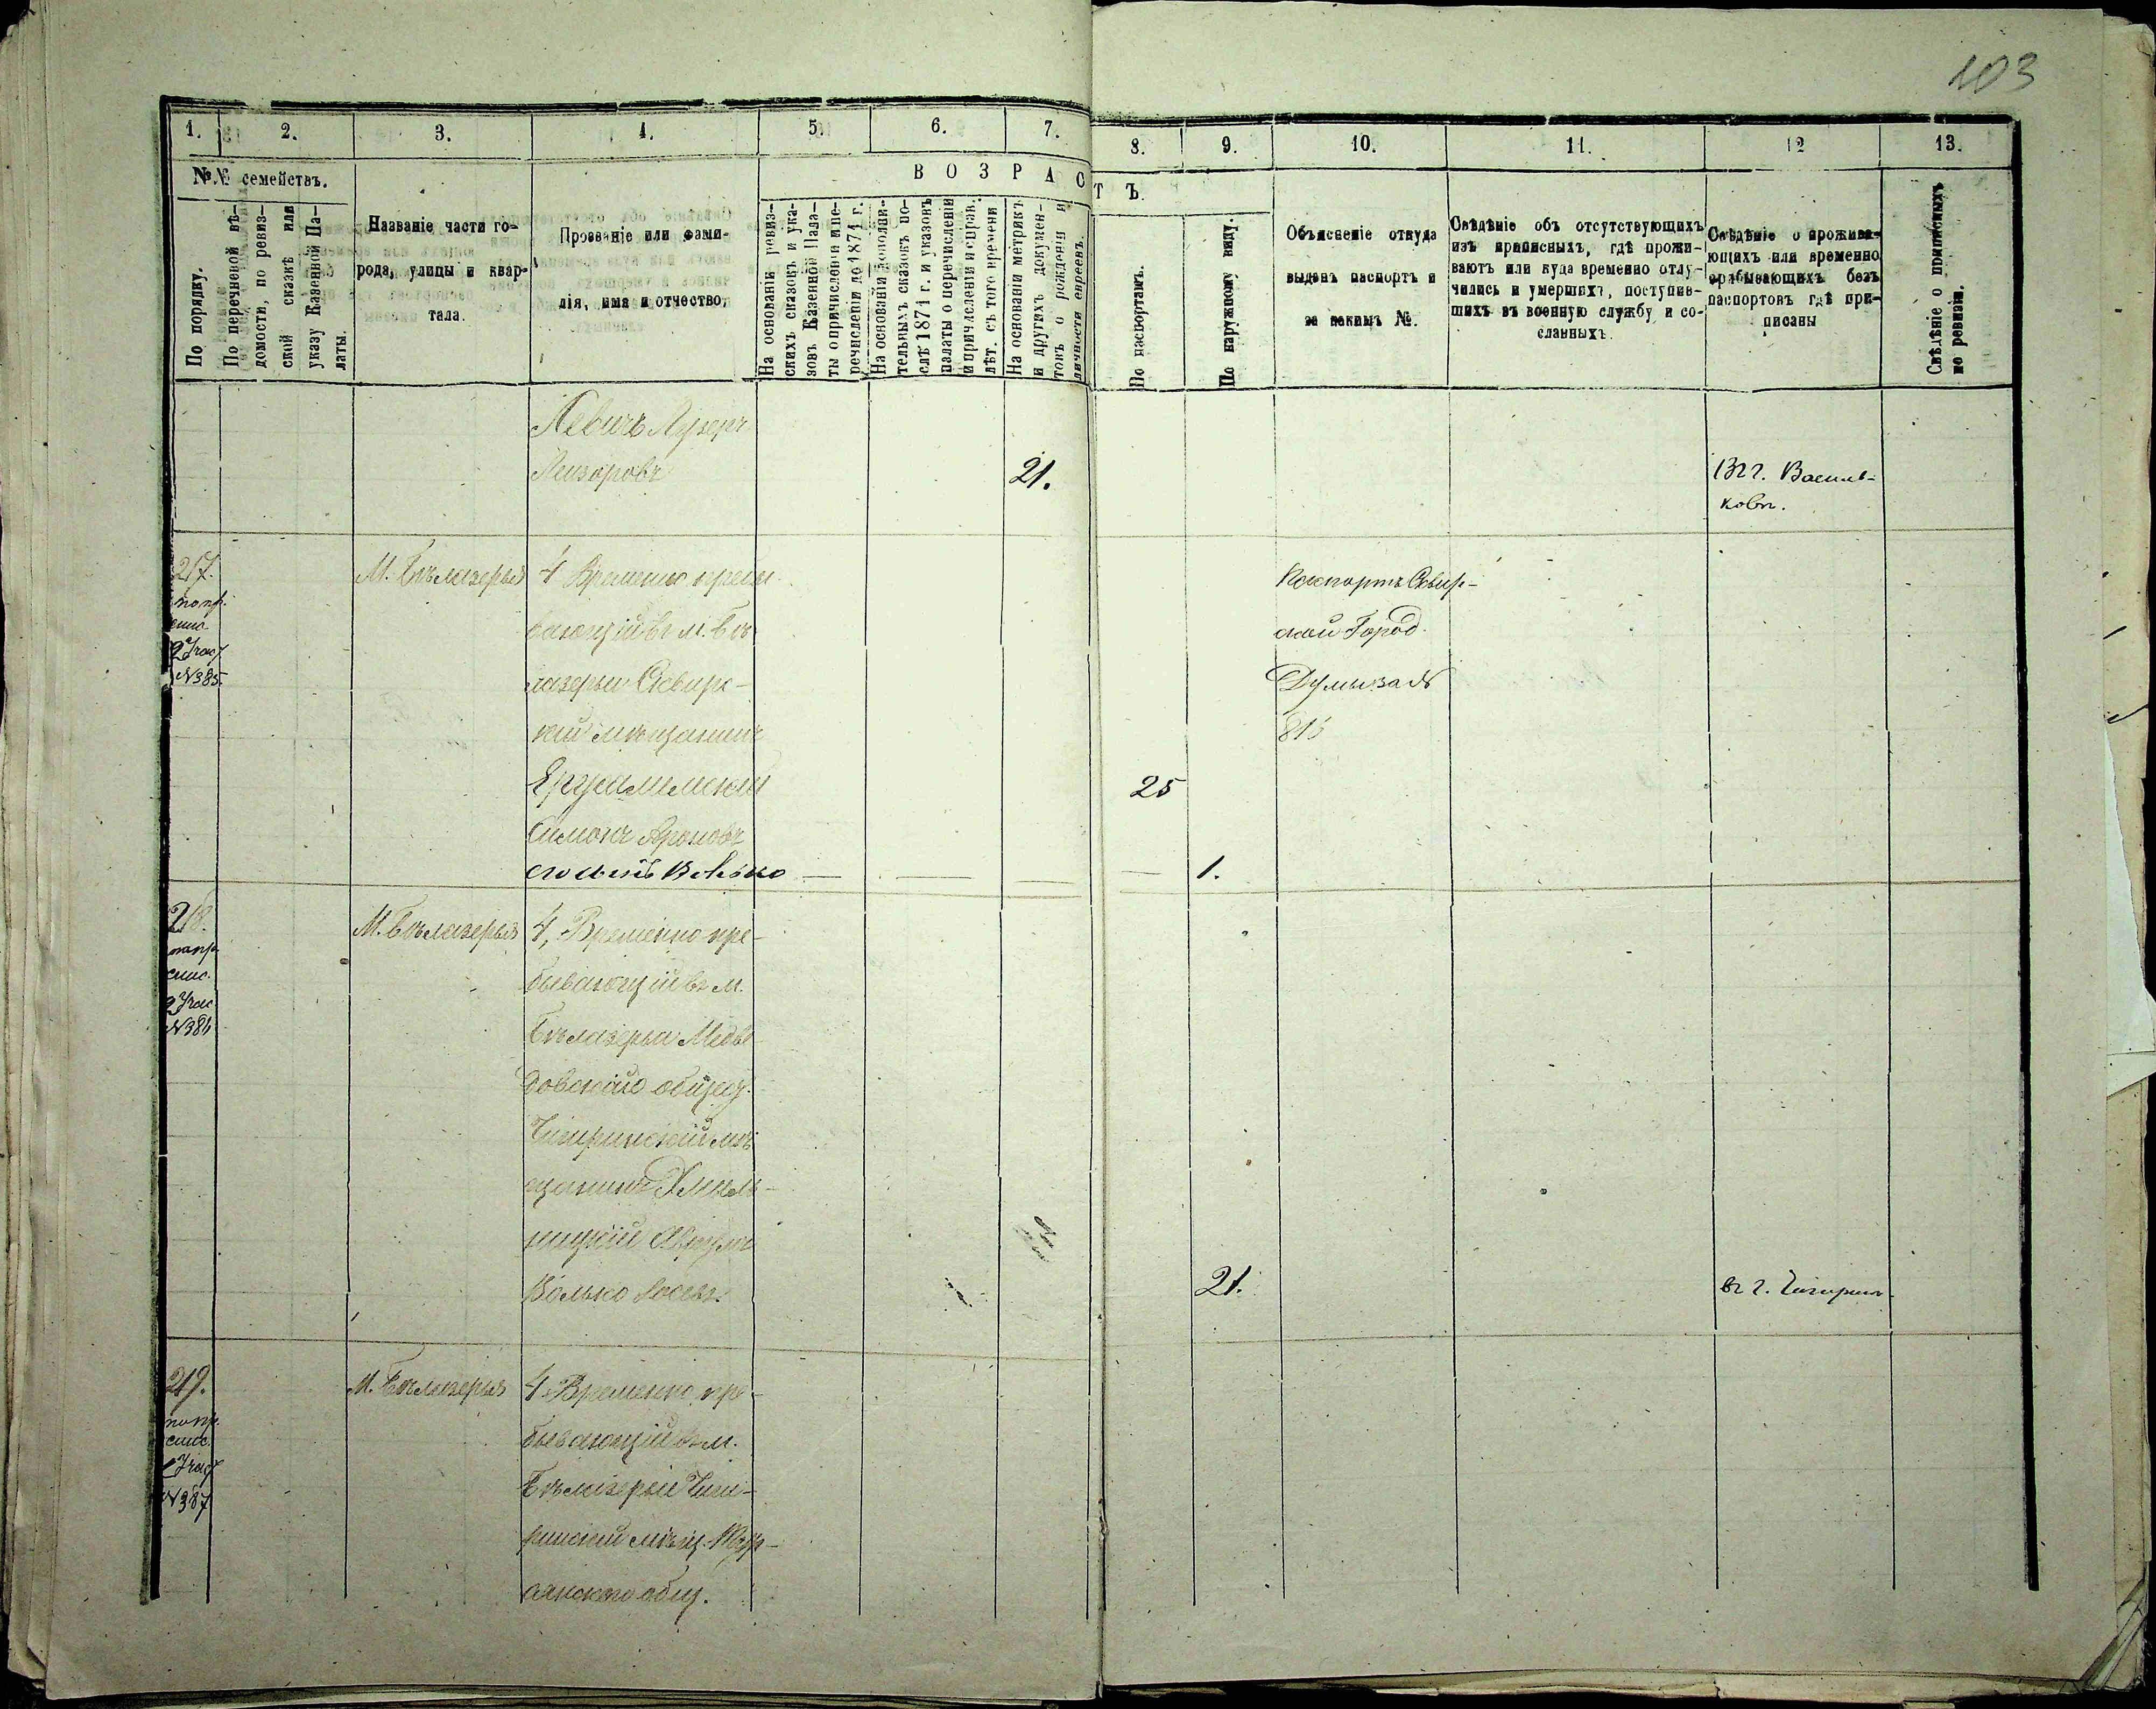 103
1. 2. 3. 4. 5. 6. 7. 8. 9. 10. 11. 12 13.
№№ семействъ.
По порядку.
По перечневой вѣ-
домости, по ревиз-
ской сказкѣ или
указу Казенной Па-
латы.
Названіе части го-
рода, улицы и квар-
тала.
Прозваніе или фами-
лія, има и отчество,
ВОЗРАСТЪ.
На основаніи ревиз-
скихъ сказокъ и ука-
зовъ Казенной Пала-
ты о причисленіи и пе-
речисленіи до 1871 г.
На основаніи дополни-
тельныхъ сказокъ по-
слѣ 1871 г. и указовъ
палаты о перечисленіи
и причисленіи и справ.
лѣт. съ того времени
На основаніи метрикъ
и другихъ докумен-
товъ о рожденіи и
личности евреевъ.
По паспортамъ.
По наружному виду.
Объясненіе откуда
выданъ паспортъ и
за какимъ №.
Свѣдѣніе объ отсутствующихъ
изъ приписныхъ, гдѣ прожи-
ваютъ или куда временно отлу-
чились и умершихъ, поступив-
шихъ въ военную службу и со-
сланныхъ.
Свѣдѣніе о прожива-
ющихъ или временно
пребывающихъ безъ
паспортовъ гдѣ при-
писаны
Свѣдѣніе о приписныхъ
по ревизіи.
Левичъ Лузеръ
Лейзоровъ
21.
Въ г. Василь-
ковѣ.
217.
по пр.
спис.
2 Учас.
№385.
М. Бѣлазерье
4 Временно пребы-
вающій въ м. Бѣ-
лазерьи Сквирс-
кій мѣщанинъ
Ерусалимскій
Симонъ Ароновъ
его сынъ Волько
25
1.
Паспортъ Сквир-
ской Город.
Думы за №
815
218.
по пр.
спис.
2 Учас
№386
М. Бѣлазерье
4, Временно пре-
бывающій въ м.
Бѣлазерьи Медве-
довскаго общес.
Чигиринскій мѣ-
щанинъ Хмѣль-
ницкій
Волько
21.
въ г. Чигиринѣ
219.
по пр.
спис.
2 Учас
№387
М. Бѣлазерье
4 Временно пре-
бывающій въ м.
Бѣлазерьи Чиги-
ринскій мѣщ.
общ.